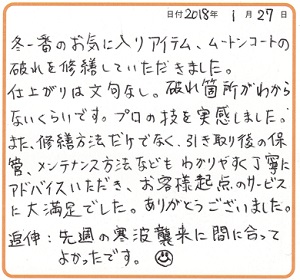 日付 2018年 1月27日
冬一番のお気に入りアイテム、ムートンコートの
破れを修繕していただきました。
仕上がりは文句なし。破れ箇所がわから
ないくらいです。プロの技を実感しました。
また、修繕方法だけでなく、引き取り後の保
管、メンテナンス方法なども わかりやすく丁寧に
アドバイスいただき、お客様起点のサービス
に大満足でした。ありがとうございました。
追伸：先週の寒波襲来に間に合って
よかったです。